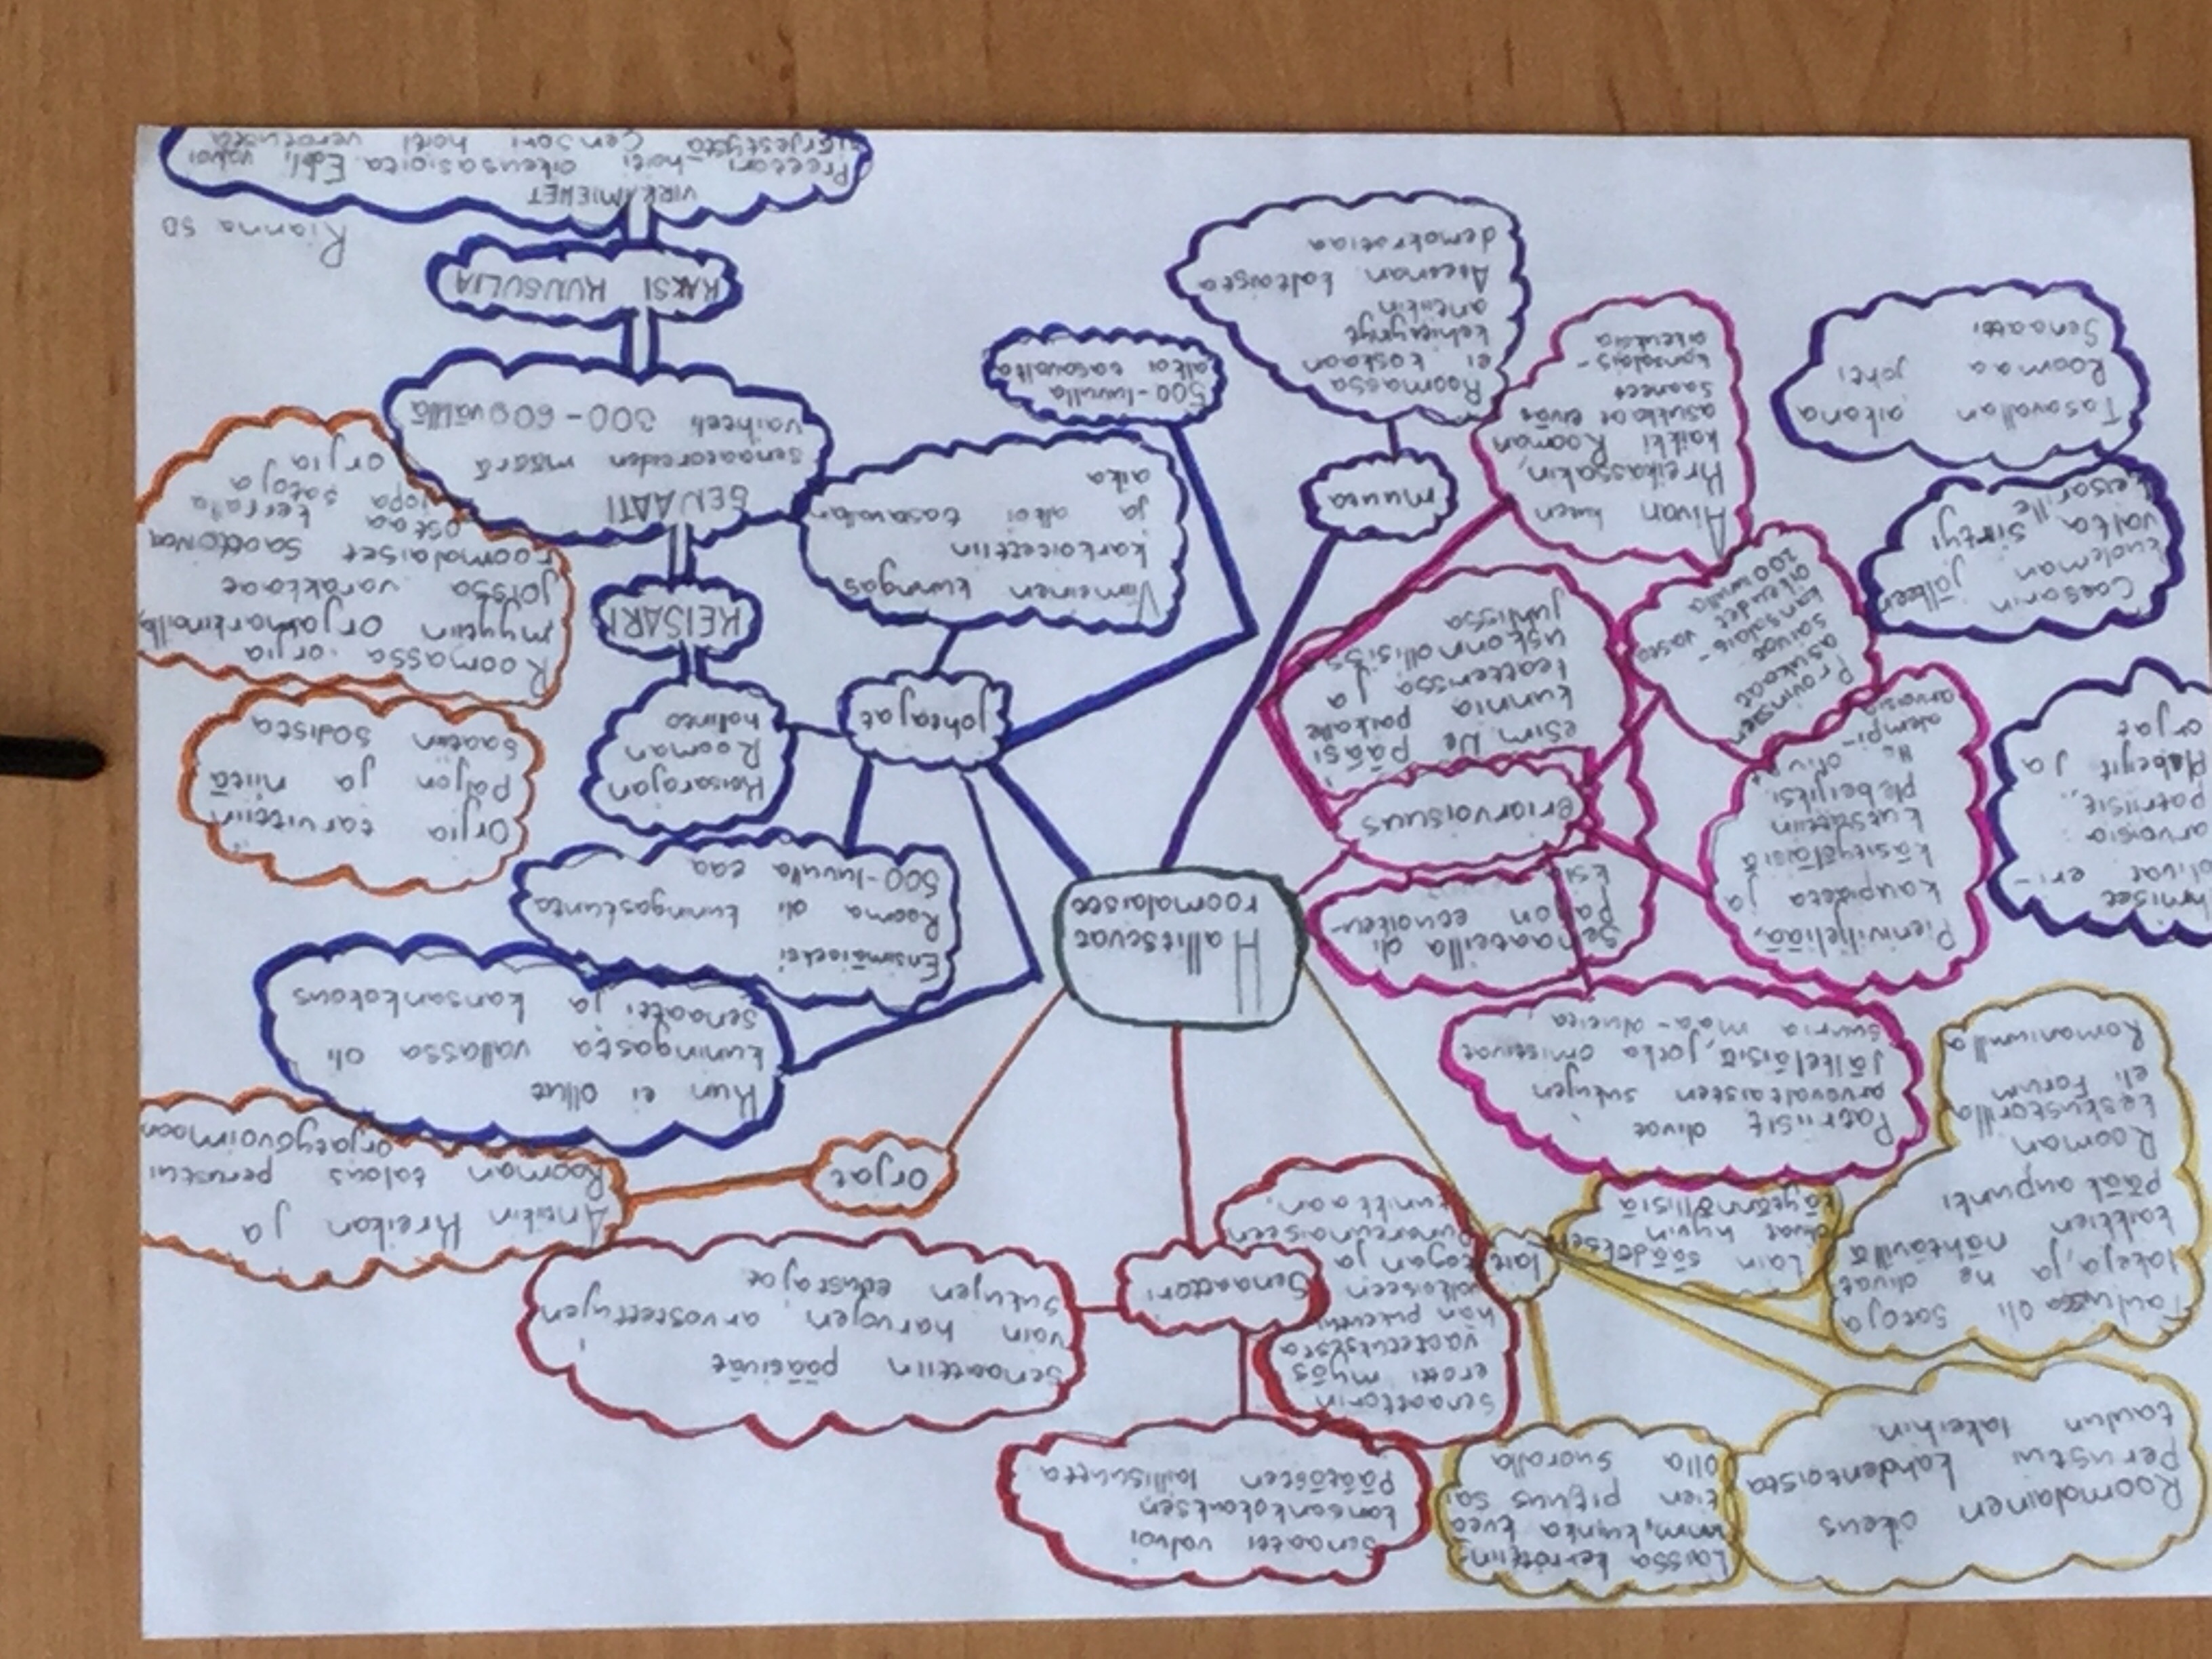 Hallitsevat
roomalaiset
lait
Roomalainen oikeus
perustui kahdentoista
taulun lakeihin.
Laissa kerrottiin
mm, kuinka leveä
tien pituus sai
olla suoralla
Taulussa oli satoja
lakeja, ja ne olivat
kaikkien nähtävillä
pääkaupunki
Rooman
keskustorilla
eli Forum
Romanumilla
Lain säädökset
olivat hyvin
käytännöllisiä
Senaattori
Senaatti valvoi
kansankokouksen
päätösten laillisuutta
Senaattorin
erotti myös
vaatetuksesta
hän pukeutui
valkoiseen
toogan ja
punareunaiseen
tunikaan.
Senaattiin pääsivät
vain harvojen, arvostettujen
sukujen edustajat
Orjat
Antiikin Kreikan ja
Rooman talous perustui
orjatyövoimaan
Orjia tarvittiin
paljon ja niitä
saatiin sodista
Roomassa orjia
myytiin orjamarkkinoilla,
joissa varakkaat
roomalaiset saattoivat
ostaa kerralla
jopa satoja
orjia
johtajat
Kun ei ollut
kuningasta vallassa oli
senaatti ja kansankokous
Ensimmäiseksi
Rooma oli kuningaskunta
500-luvulla eaa
Keisarajan
Rooman
hallinto
KEISARI
SENAATTI
senaattoreiden määrä
vaihteli 300-600 välillä
KAKSI KONSULIA
VIRKAMIEHET
Preetori hoiti oikeusasioita. Ediili valvoi
järjestystä Censori hoiti verotusta
Rianna 5D
Viimeinen kuningas
karkoitettiin
ja alkoi tasavallan
aika
500-luvulla
alkoi tasavalta
muuta
Roomassa
ei koskaan
kehittynyt
antiikin
Ateenan kaltaista
demokratiaa
eriarvoisuus
Patriisit olivat
arvovaltaisten sukujen
jälkeläisiä, jotka omistivat
suuria maa-alueita
Senaateilla oli
paljon etuoikeu-
ksia
esim. He pääsi
kunnia paikalle
teatterissa ja
uskonnollisissa
juhlissa
Pienviljeliää,
kauppiaita ja
käsityöläisiä
kutsuttiin
plebeijiksi.
He olivat
alempi-
arvoisia
Provinssien
asukkaat
saivat
kansalais-
oikeudet vasta
200 luvulla
Aivan kuten
Kreikassakin,
kaikki Rooman
asukkaat eivät
saaneet
kansalais-
oikeuksia
Ihmiset
olivat eri-
arvoisia
patriisit,
Plebeijit ja
orjat
Caesarin
kuoleman jälkeen
valta siirtyi
keisarille
Tasavallan aikana
Roomaa johti
Senaatti